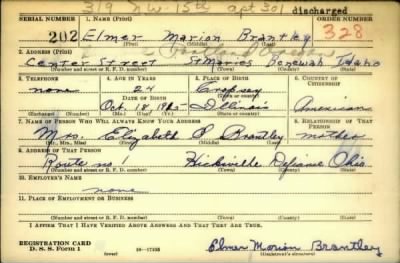 319 N.W. 15th apt 301 discharged
SERIAL NUMBER 1. NAME (Print)
202 Elmer Marion Brantley 328
(First) (Middle) (Last)
2. ADDRESS (Print) Portland Oregon
Center Street St Maries Benewah Idaho
(Number and street or R. F. D. number) (Town) (County) (State)
3. TELEPHONE 4. AGE IN YEARS 5. PLACE OF BIRTH 6. COUNTRY OF CITIZENSHIP
none 24 Cropsey
DATE OF BIRTH
Oct. 18 Illinois American
(Mo.) (Day) (Yr.) (State or country)
7. NAME OF PERSON WHO WILL ALWAYS KNOW YOUR ADDRESS 8. RELATIONSHIP OF THAT PERSON
Mrs. Elizabeth Brantley mother
(Mr., Mrs., Miss) (First) (Middle) (Last)
9. ADDRESS OF THAT PERSON
Route no 1 Hicksville Defiance Ohio
(Number and street or R. F. D. number) (Town) (County) (State)
10. EMPLOYER'S NAME
none
11. PLACE OF EMPLOYMENT OR BUSINESS
(Number and street or R. F. D. number) (Town) (County) (State)
I AFFIRM THAT I HAVE VERIFIED ABOVE ANSWERS AND THAT THEY ARE TRUE.
REGISTRATION CARD
D. S. S. Form 1 16-17105 Elmer Marion Brantley
(Registrant's signature)